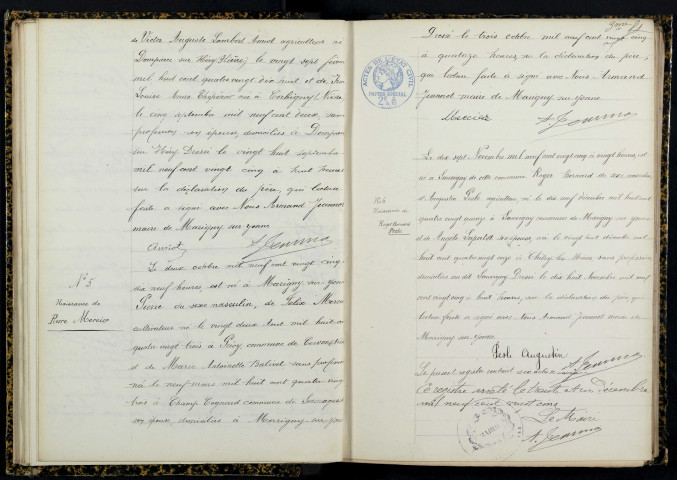 de Victor Auguste Lambert Amiot agriculteur né
à Dompierre sur Héry (Nièvre) le vingt sept juin
mil huit cent quatre vingt dix huit et de
Louise née à Corbigny (Nièvre)
le cinq septembre mil neuf cent deux, sans
profession son épouse, domiciliés à Dompierre
sur Héry Dressé le vingt huit septembre
mil neuf cent vingt cinq à huit heures
sur la déclaration du père, qui lecture
faite a signé avec Nous Armand Jeannot
maire de Marigny sur Yonne
Amiot A. Jeannot
N° 5
Naissance de
Pierre Mercier
Le deux octobre mil neuf cent vingt cinq
dix neuf heures, est né à Marigny sur Yonne
Pierre du sexe masculin, de Félix Mercier
cultivateur né le vingt deux Août mil huit cent
quatre vingt trois à commune de
et de Marie Antoinette sans profession
née le neuf mars mil huit cent quatre vingt
à Champ commune de
son épouse, domiciliés à Marigny sur Yonne
Dressé le trois octobre mil neuf cent vingt cinq
à quatorze heures sur la déclaration du père,
qui lecture faite a signé avec Nous Armand
Jeannot maire de Marigny sur Yonne
Mercier A. Jeannot
ACTES DE L'ÉTAT CIVIL
PAPIER SPÉCIAL
N° 6
Naissance de
Roger Bernard
Perle
Le dix sept Novembre mil neuf cent vingt cinq à vingt heures, est
né à Sauvigny de cette commune Roger Bernard du sexe masculin
d'Augustin agriculteur, né le dix neuf décembre mil huit cent
quatre vingt onze à Sauvigny commune de Marigny sur Yonne
et de Angèle son épouse, née le vingt décembre mil
huit cent quatre vingt onze à Chitry les Mines sans profession
domiciliés au dit Sauvigny Dressé le dix huit Novembre mil neuf
cent vingt cinq à huit heures, sur la déclaration du père qui
lecture faite a signé avec Nous Armand Jeannot maire de
Marigny sur Yonne
Augustin
A. Jeannot
Le présent registre contient six actes
Ce registre arrêté le trente et un décembre
mil neuf cent vingt cinq
Le Maire
A. Jeannot